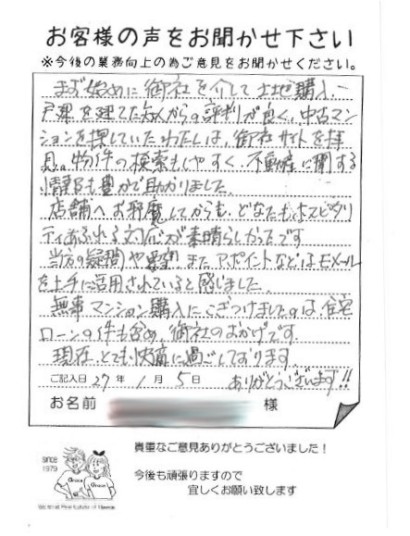 お客様の声をお聞かせ下さい
※今後の業務向上の為ご意見をお聞かせください。
まず始めに御社を介して土地購入、一
戸建を建てた知人からの評判が良く、中古マン
ションを探していたわたしは、御社サイトを拝
見。物件の検索もしやすく、不動産に関する
情報も豊かで助かりました。
店舗へお邪魔してからも、どなたもホスピタリ
ティあふれる対応が素晴らしかったです
当方の疑問や要望、またアポイントなどはEメール
を上手に活用されていると感じました。
無事マンション購入にこぎつけましたのは、住宅
ローンの件も含め、御社のおかげです。
現在、とても快適に過ごしております
ご記入日 27年 1月 5日 ありがとうございます!!
お名前 様
SINCE
1979
貴重なご意見ありがとうございました！
今後も頑張りますので
宜しくお願い致します